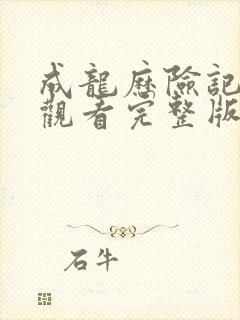 成龍歷險記
觀看完整版
石牛